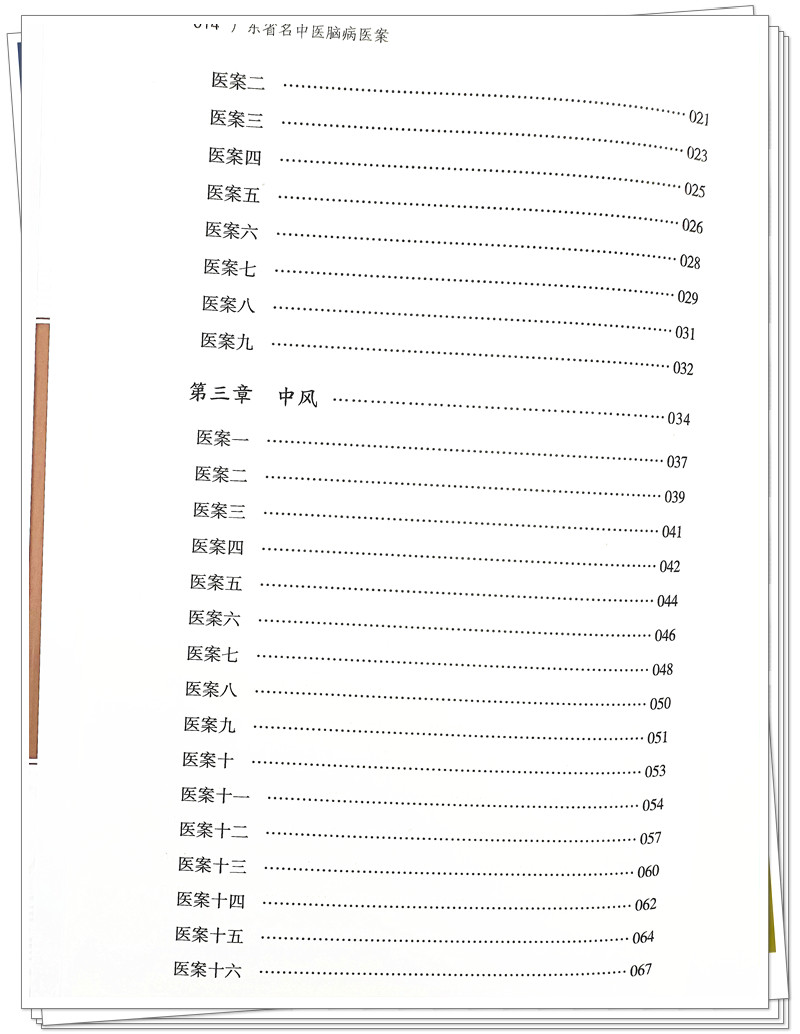 014 广东省名中医脑病医案
医案二 021
医案三 023
医案四 025
医案五 026
医案六 028
医案七 029
医案八 031
医案九 032
第三章 中风 034
医案一 037
医案二 039
医案三 041
医案四 042
医案五 044
医案六 046
医案七 048
医案八 050
医案九 051
医案十 053
医案十一 054
医案十二 057
医案十三 060
医案十四 062
医案十五 064
医案十六 067